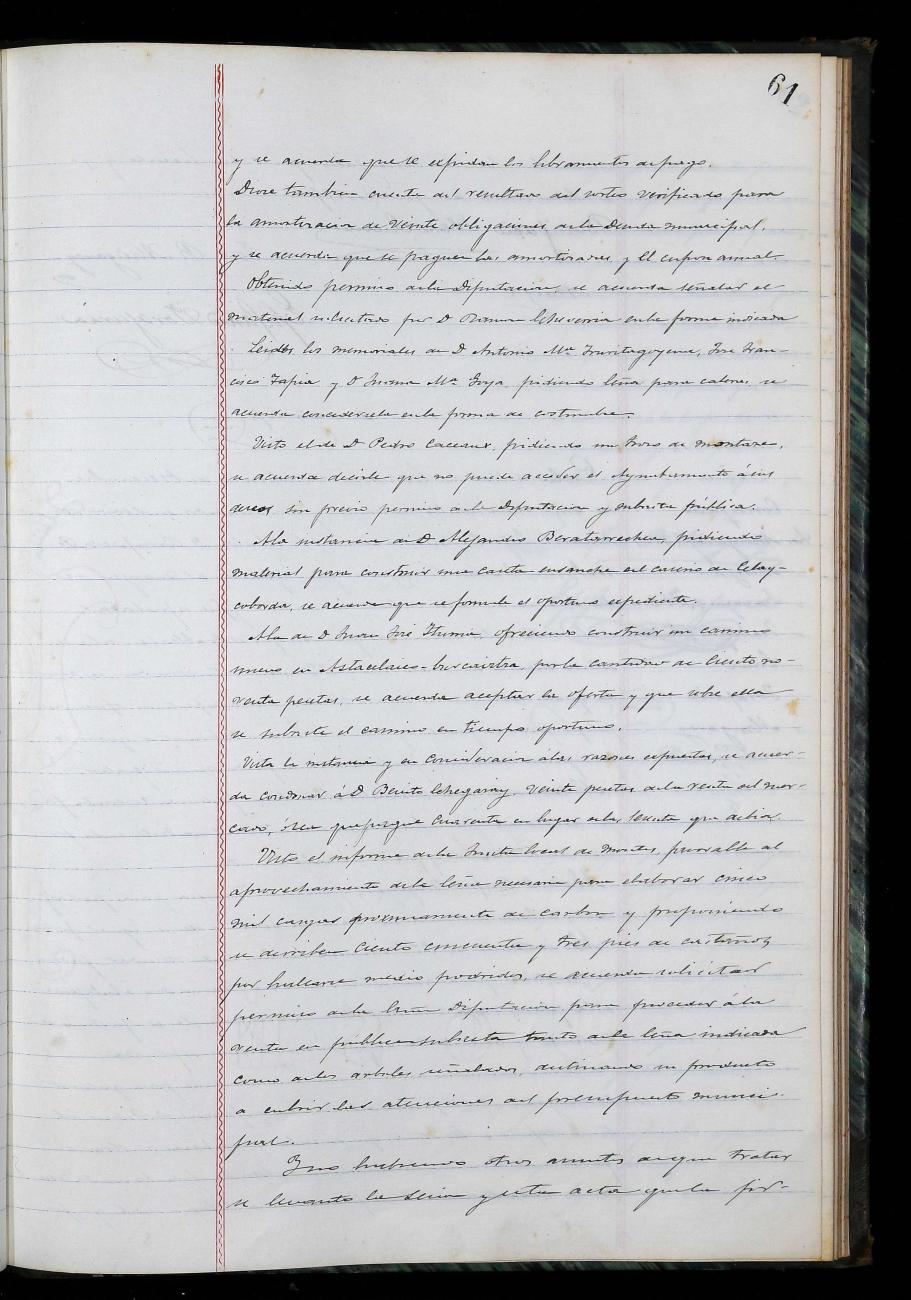 61
y se acuerda que se espidan los libramientos de pago.
Diose tambien cuenta del resultado del sorteo verificado para
la amortizacion de veinte obligaciones de la Deuda municipal,
y se acuerda que se paguen las amortizadas y el cupon anual.
Obtenido permiso de la Diputacion, se acuerda señalar el
material solicitado por D Ramon Echeverria en la forma indicada
Leidos los memoriales de D Antonio Mª Inarritagoyena, José Fran-
cisco Tapia y D Mª Goya, pidiendo leña para calones, se
acuerda concedersela en la forma de costumbre.
Visto el de D Pedro Caceaux, pidiendo un trozo de montazo,
se acuerda decirle que no puede acceder el Ayuntamiento á sus
deseos sin previo permiso de la Diputacion y subasta pública.
A la instancia de D Alejandro Beratarrechea, pidiendo
material para construir una caseta ensanche del camino de Celay-
coborda, se acuerda que se formule el oportuno espediente.
A la de D Juan José Iturria, ofreciendo construir un camino
nuevo en por la cantidad de ciento no-
venta pesetas, se acuerda aceptar la oferta y que sobre ella
se subaste el camino en tiempo oportuno.
Vista la instancia y en consideracion á las razones espuestas, se acuer-
da condonar á D Benito Echegaray, veinte pesetas de la renta del mer-
cado, ó sea que pague cuarenta en lugar de las sesenta que debia.
Visto el informe de la Junta local de montes, favorable al
aprovechamiento de la leña necesaria para elaborar cinco
mil cargas proximamente de carbon y proponiendo
se derriben ciento cincuenta y tres pies de castaños
por hallarse medio podridos, se acuerda solicitar
permiso de la Exma Diputacion para proceder á la
venta en pública subasta tanto de la leña indicada
como de los arboles señalados, destinando su producto
a cubrir las atenciones del presupuesto munici-
pal.
Y no habiendo otros asuntos de que tratar
se levantó la sesion y esta acta que la fir-